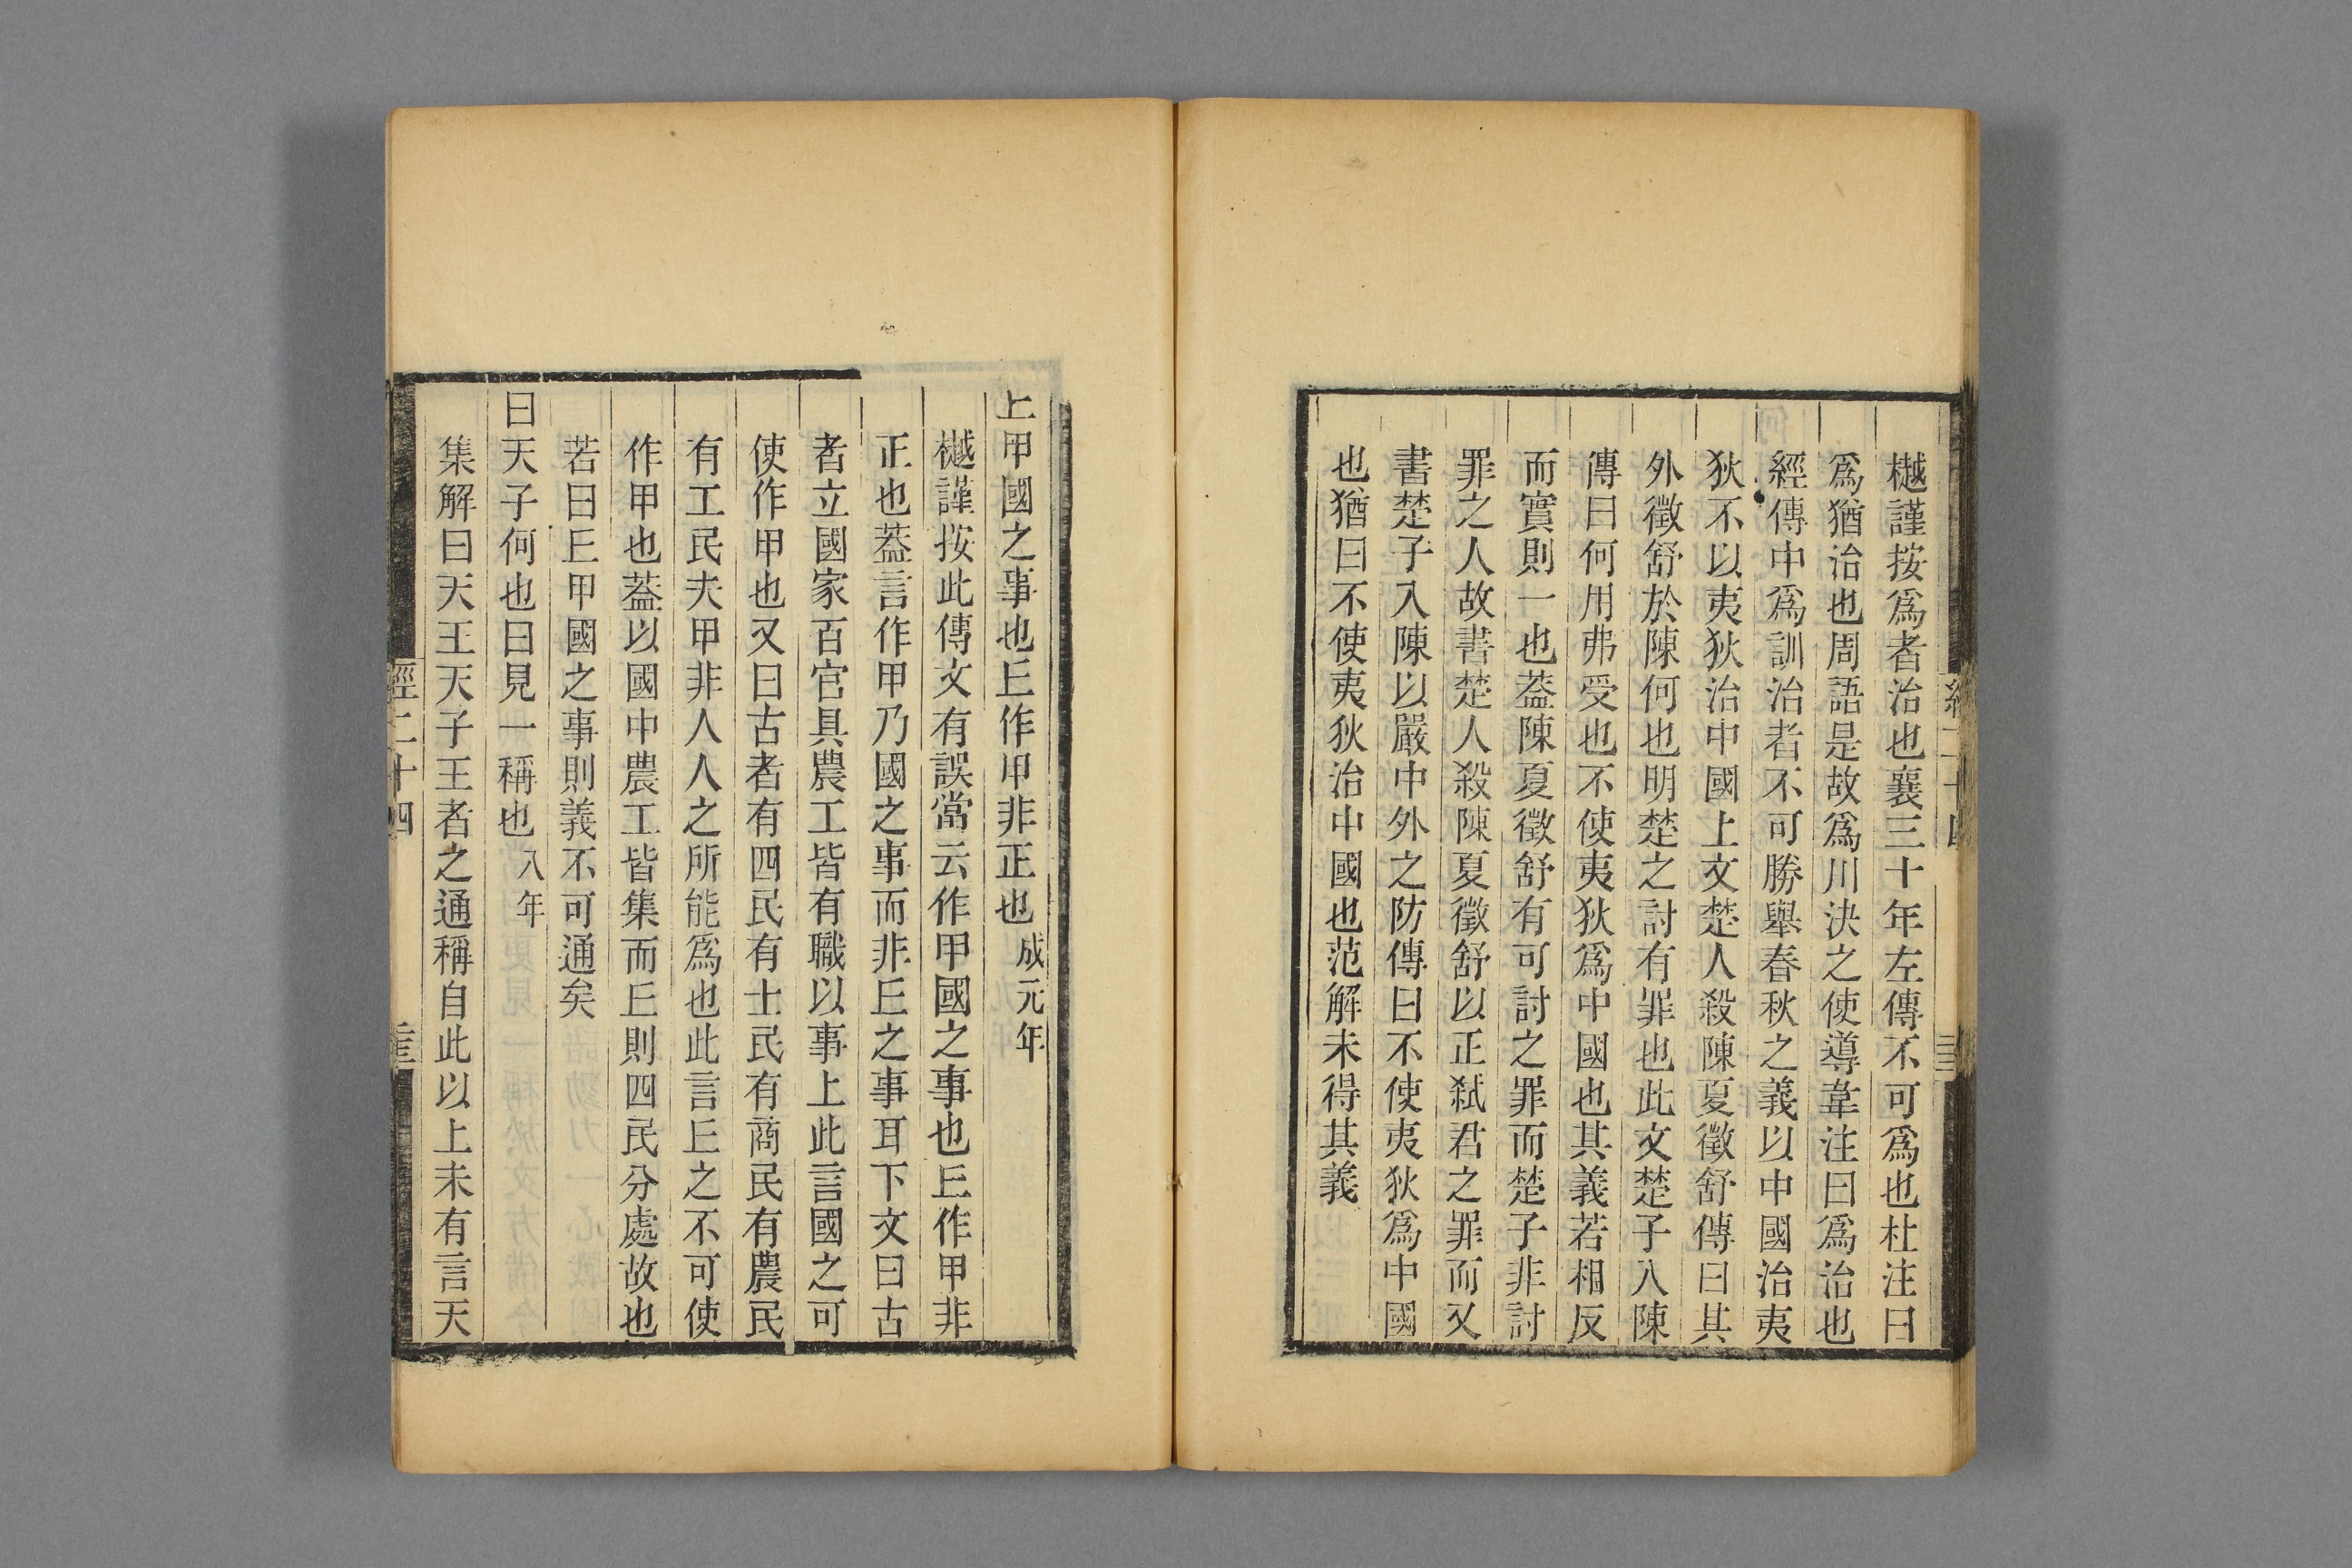 樾謹按爲者治也襄三十年左傳不可爲也杜注曰
爲猶治也周語是故爲川決之使導韋注曰爲治也
經傳中爲訓治者不可勝舉春秋之義以中國治夷
狄不以夷狄治中國上文楚人殺陳夏徵舒傳曰其
外徵舒於陳何也明楚之討有罪也此文楚子入陳
傳曰何用弗受也不使夷狄爲中國也其義若相反
而實則一也葢陳夏徵舒有可討之罪而楚子非討
罪之人故書楚人殺陳夏徵舒以正弒君之罪而又
書楚子入陳以嚴中外之防傳曰不使夷狄爲中國
也猶曰不使夷狄治中國也范解未得其義
丘甲國之事也丘作甲非正也成元年
樾謹按此傳文有誤當云作甲國之事也丘作甲非
正也葢言作甲乃國之事而非丘之事耳下文曰古
者立國家百官具農工皆有職以事上此言國之可
使作甲也又曰古者有四民有士民有商民有農民
有工民夫甲非人人之所能爲也此言丘之不可使
作甲也葢以國中農工皆集而丘則四民分處故也
若曰丘甲國之事則義不可通矣
曰天子何也曰見一稱也八年
集解曰天王天子王者之通稱自此以上未有言天
經二十四